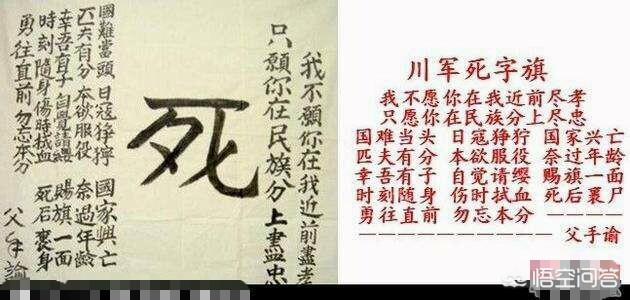 我不願你在我近前盡孝
只願你在民族分上盡忠
死
國難當頭 日寇猙獰 國家興亡
匹夫有分 本欲服役 奈過年齡
幸吾有子 自覺請纓 賜旗一面
時刻隨身 傷時拭血 死后裹身
勇往直前 勿忘本分
父手諭
川军死字旗
我不愿你在我近前尽孝
只愿你在民族分上尽忠
国难当头 日寇狰狞 国家兴亡
匹夫有分 本欲服役 奈过年龄
幸吾有子 自觉请缨 赐旗一面
时刻随身 伤时拭血 死后裹尸
勇往直前 勿忘本分 ————
—————————— 父手谕
悟空问答